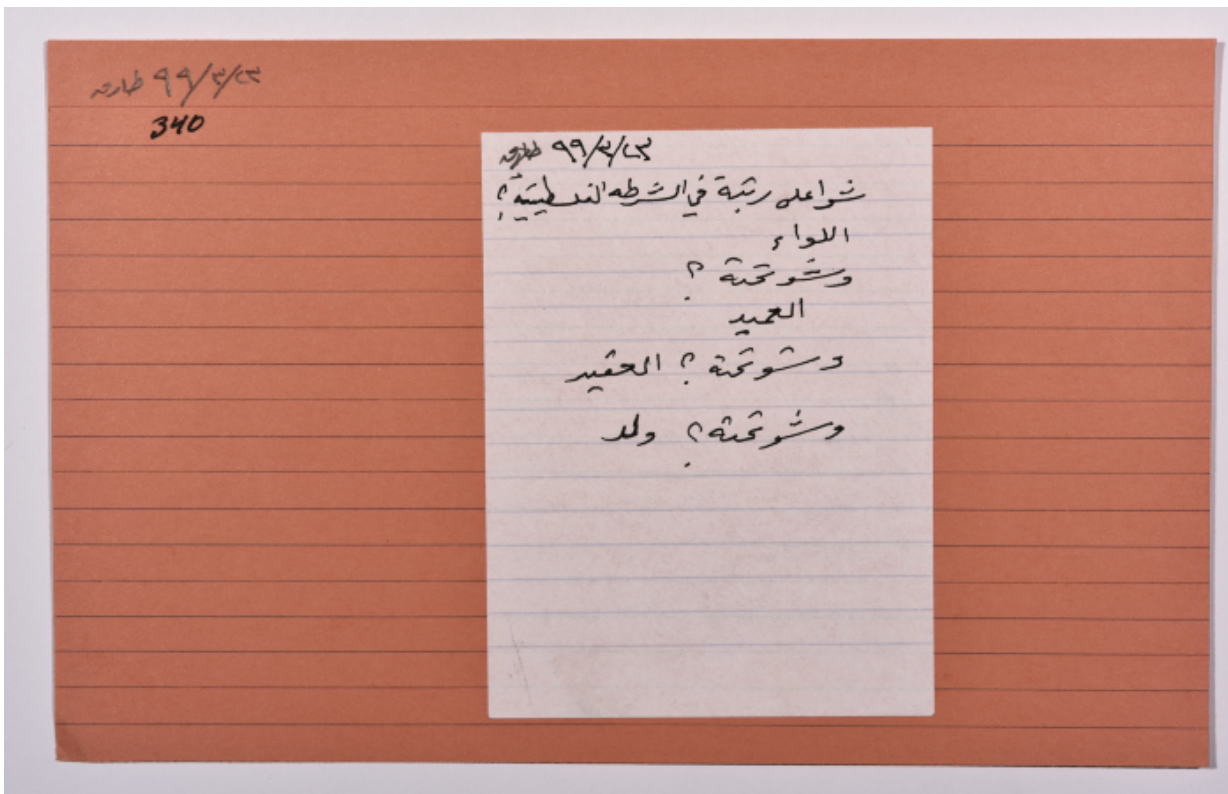 ٩٩/٣/٢٣ طازجه
340
٩٩/٣/٢٣ طازجه
شو اعلى رتبة في الشرطه الفلسطينية؟
اللواء
وشو تحتة؟
العميد
وشو تحتة؟ العقيد
وشو تحتة؟ ولد